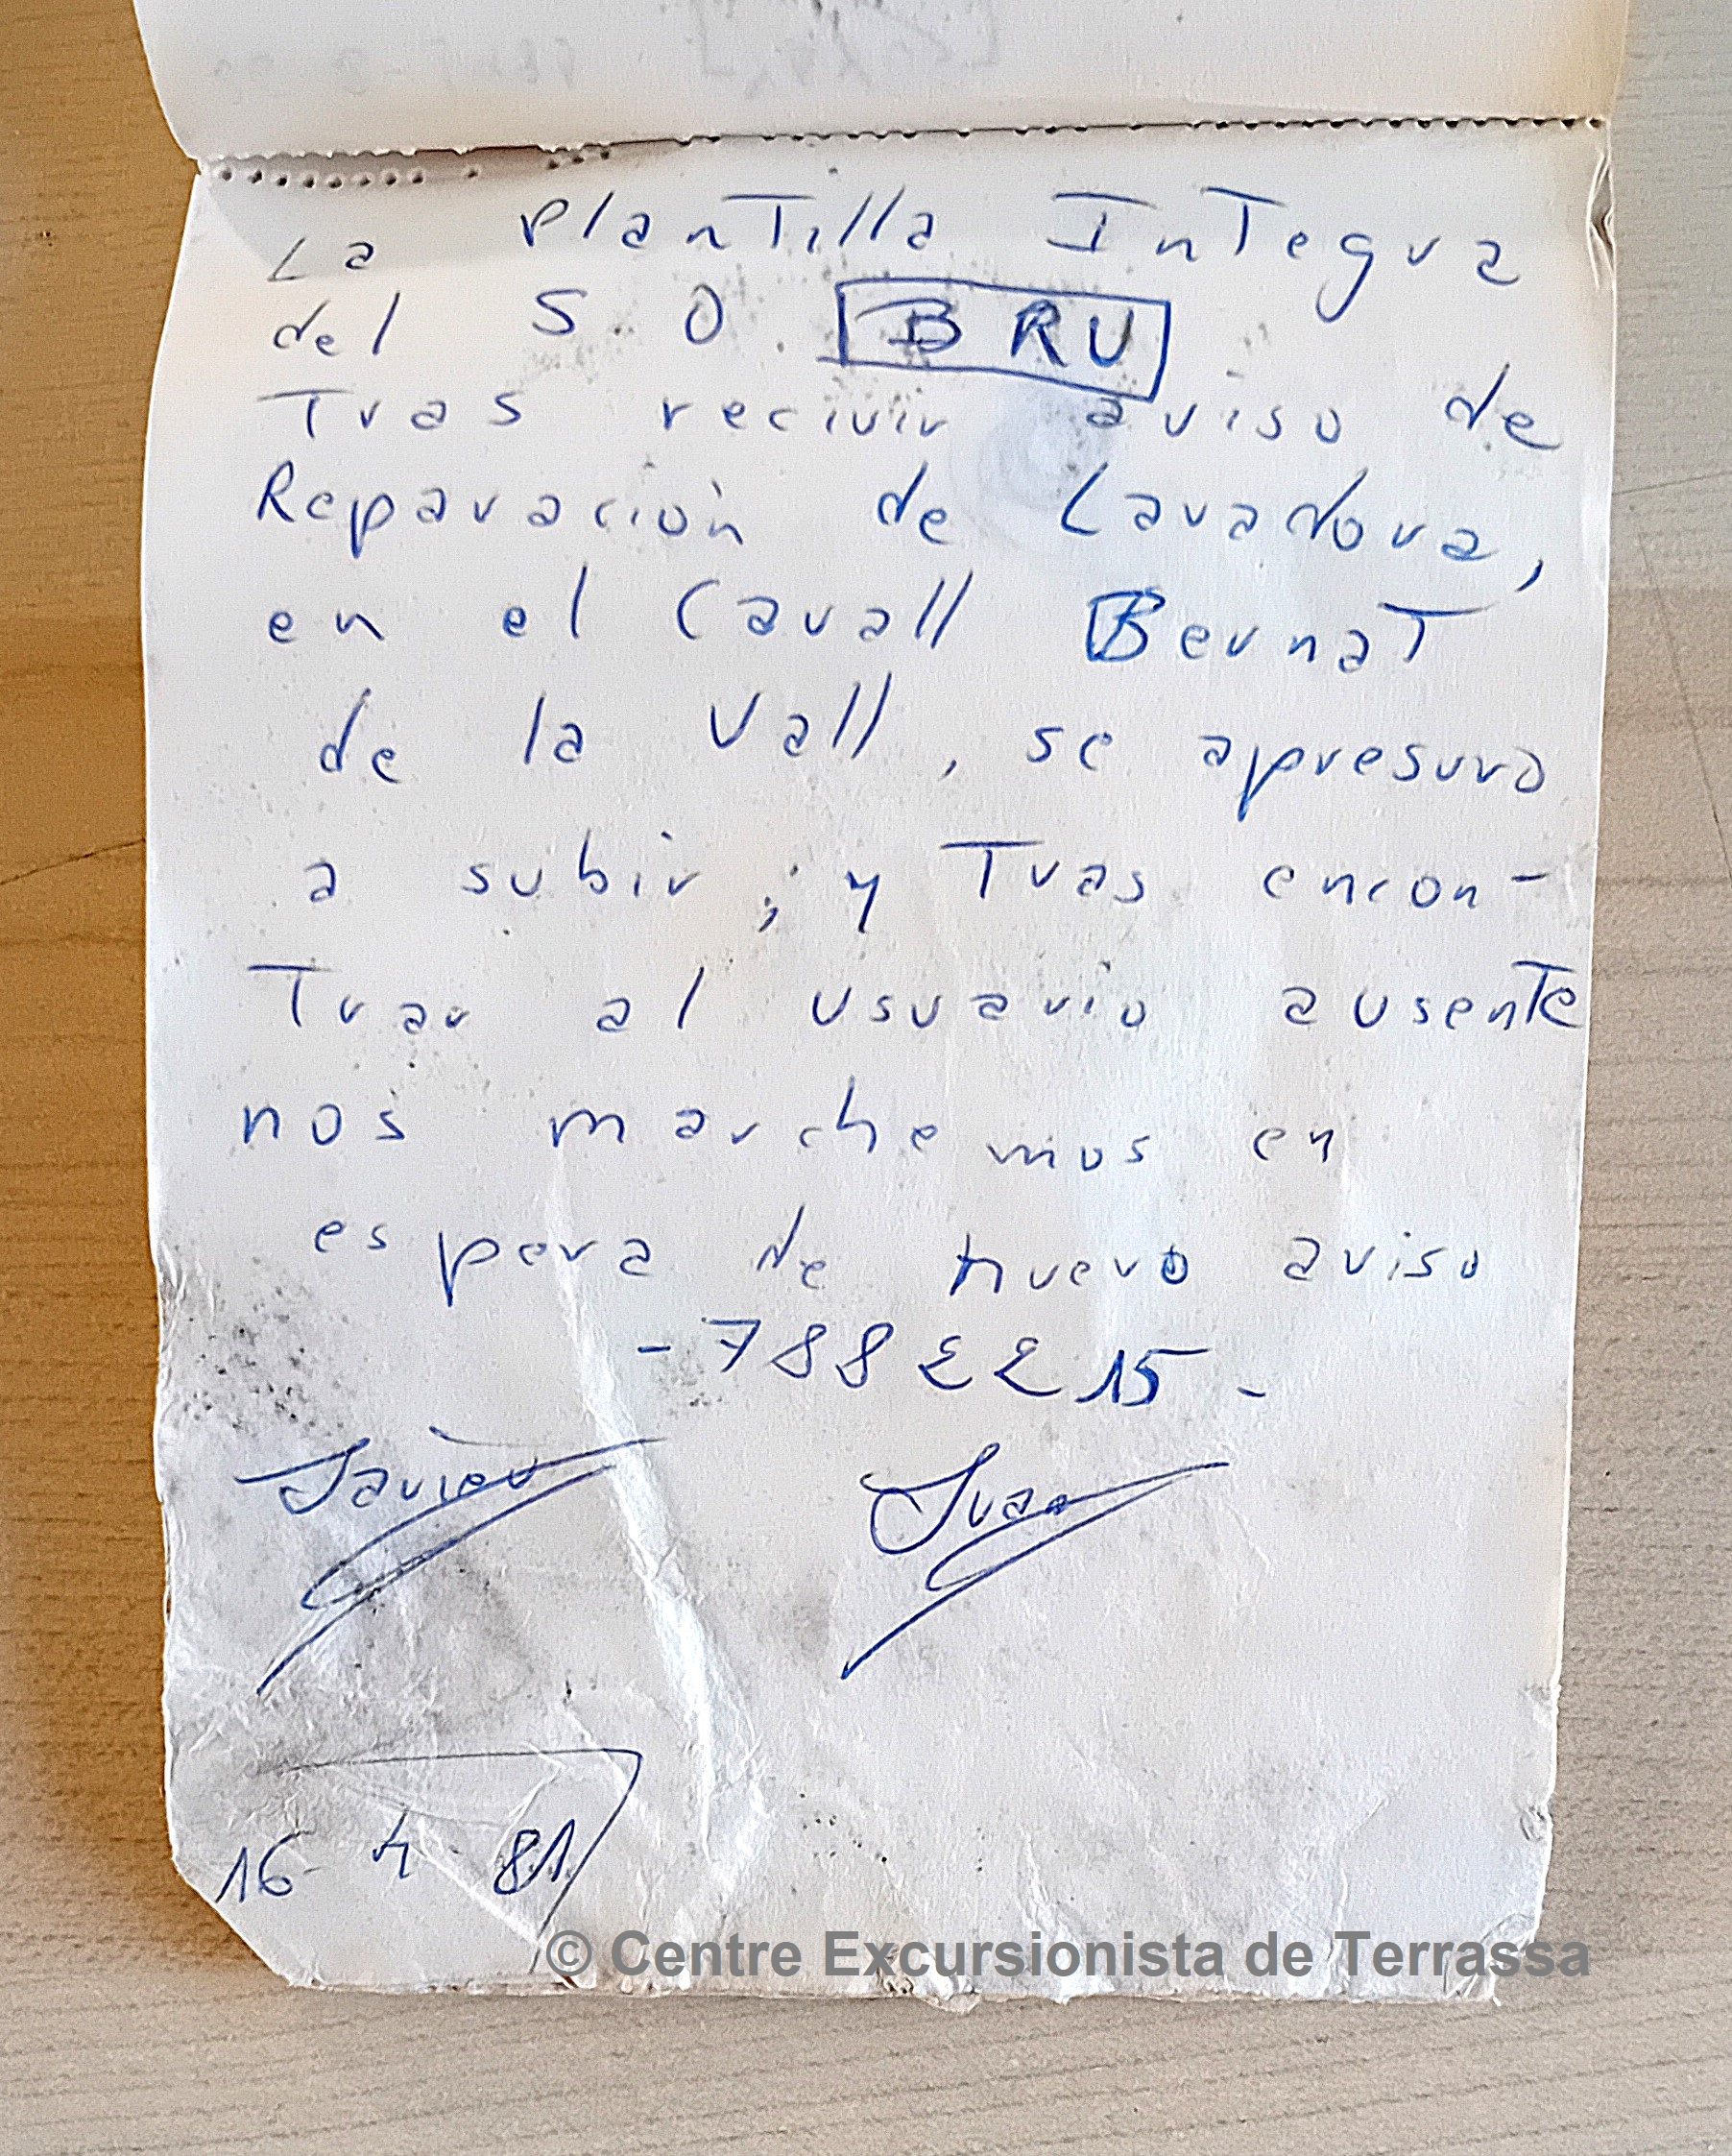 La Plantilla Integra
del S.O. BRU
Tras recivir aviso de
Reparación de Lavadora,
en el Cavall Bernat
de la Vall, se apresuro
a subir; y Tras encon-
Trar al usuario ausente
nos marchemos en
espera de nuevo aviso
-7882215-
Javier Juan
16-4-81
© Centre Excursionista de Terrassa